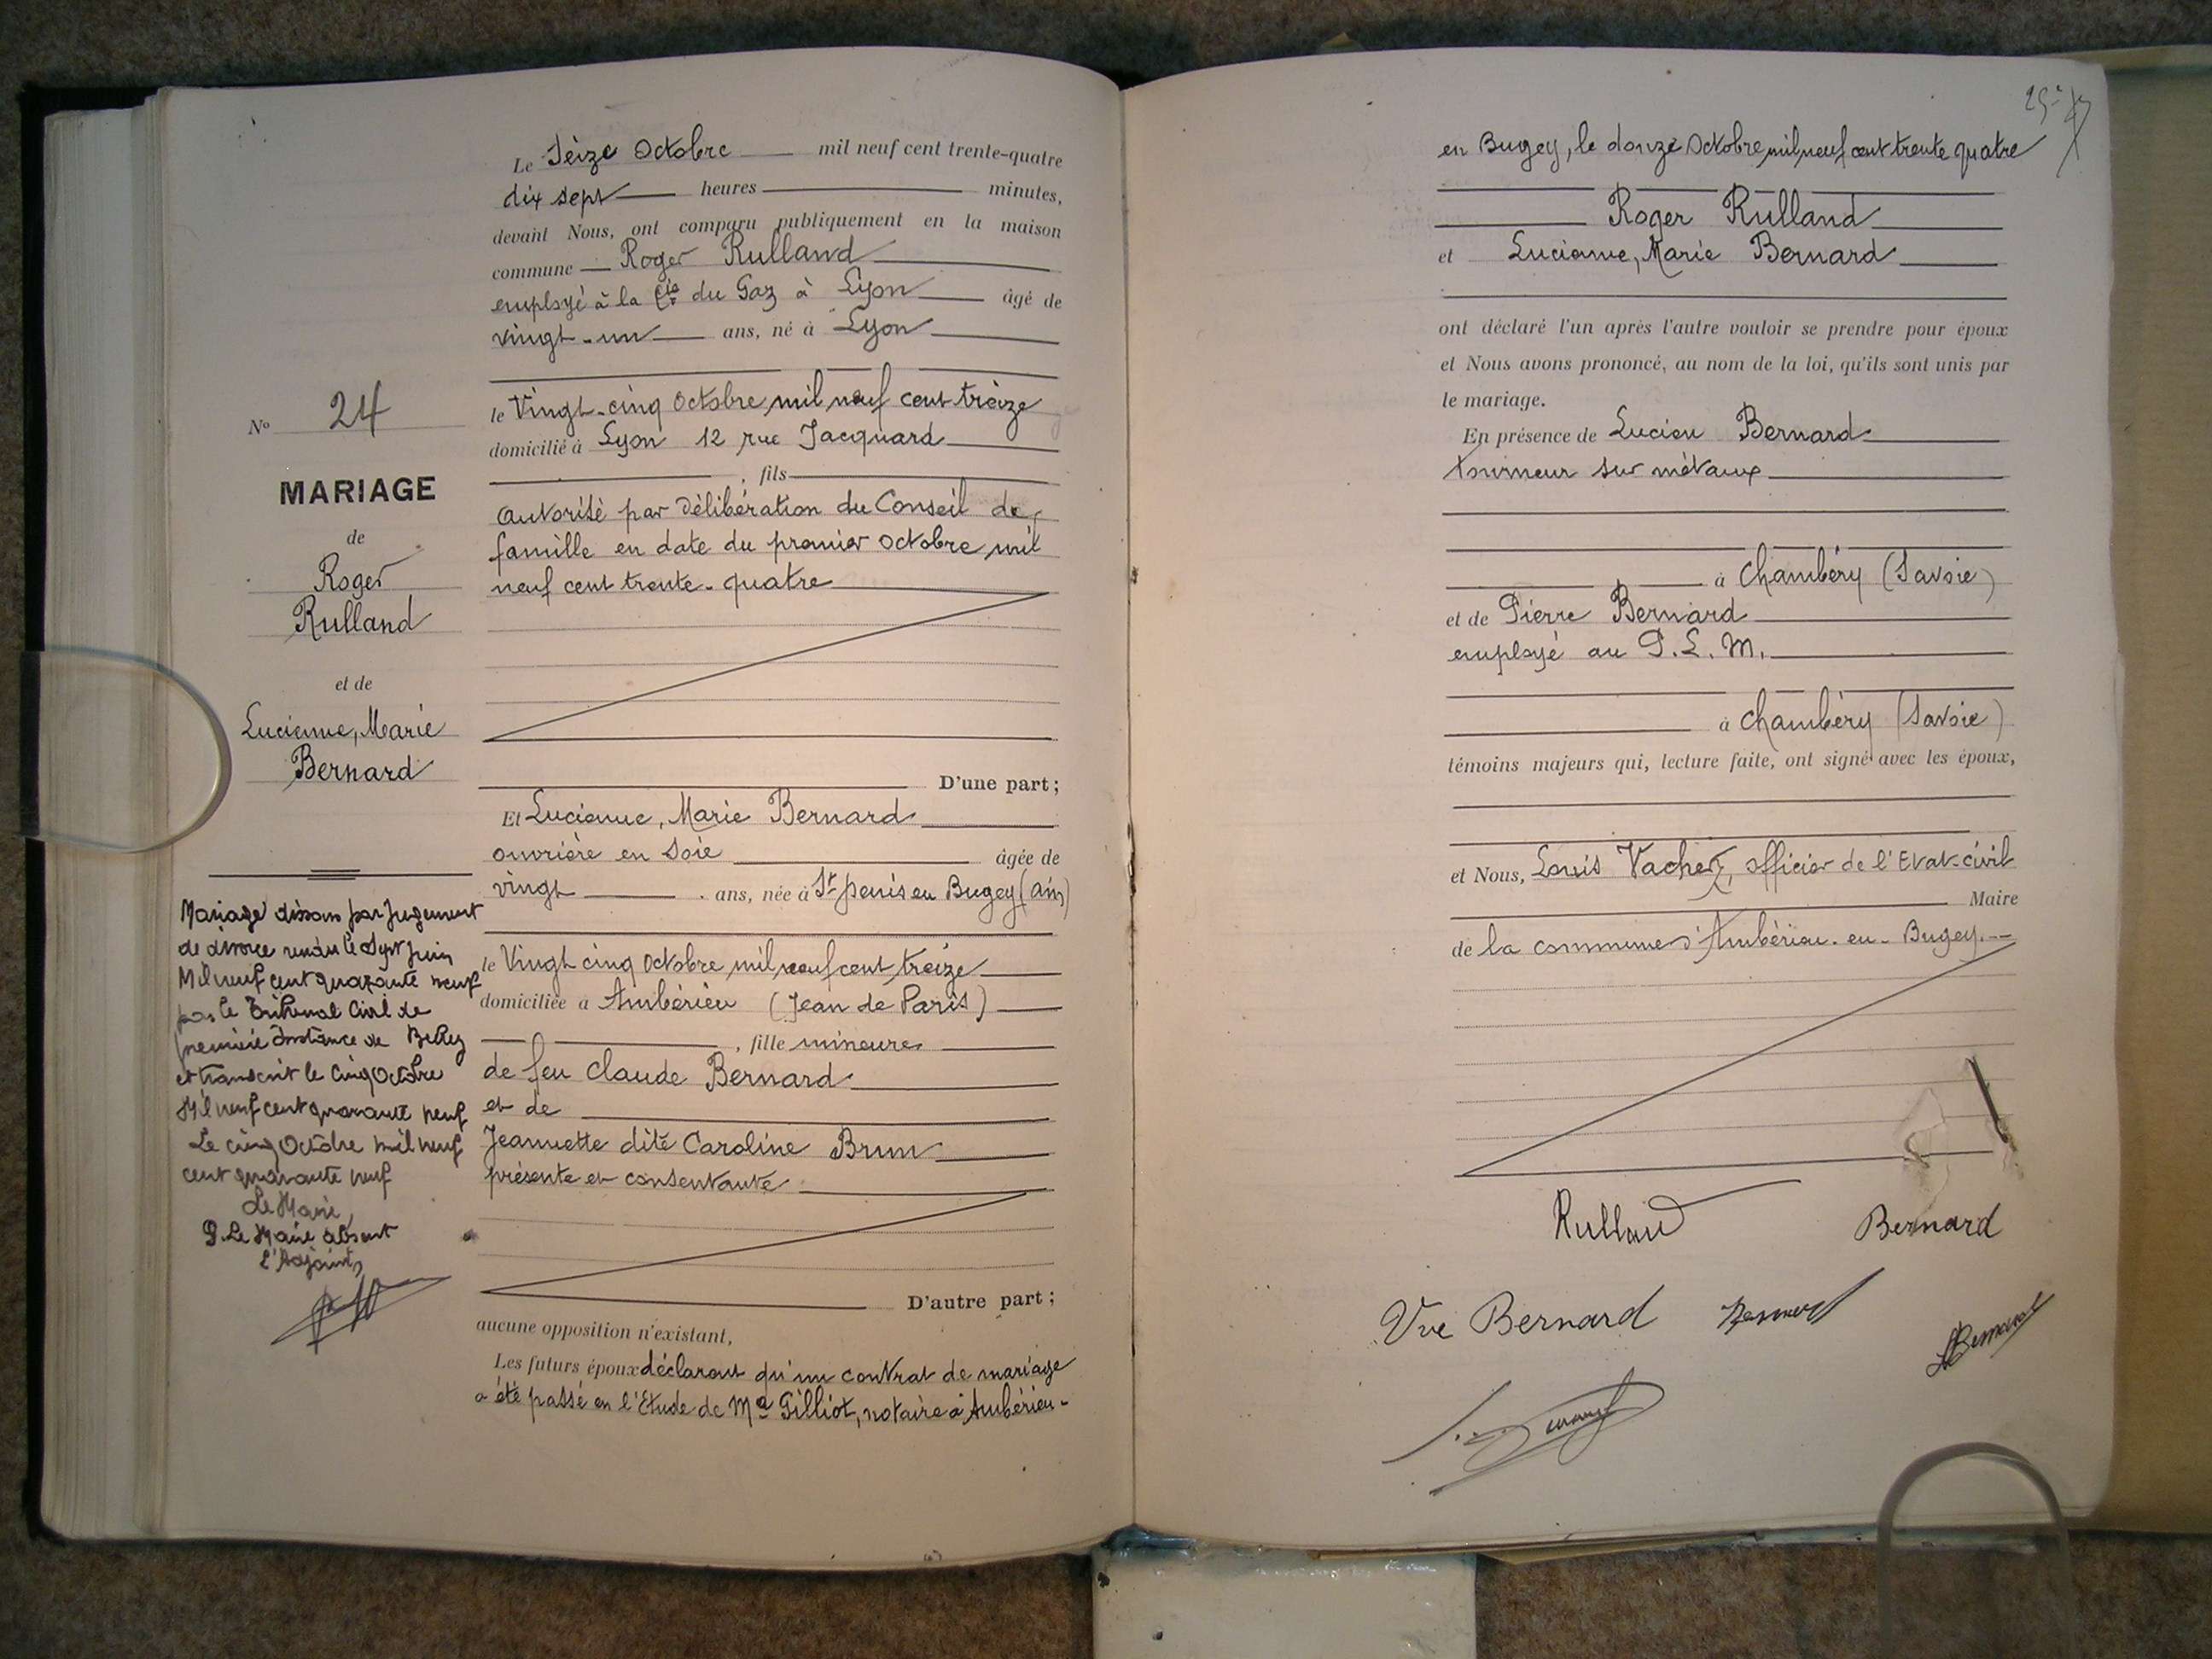 Le Seize Octobre mil neuf cent trente-quatre
dix sept heures minutes,
devant Nous, ont comparu publiquement en la maison
commune Roger Rulland
employé à la Cie du Gaz à Lyon âgé de
vingt-un ans, né à Lyon
le Vingt-cinq Octobre mil neuf cent treize
domicilié à Lyon 12 rue Jacquard
, fils
autorisé par délibération du Conseil de
famille en date du premier octobre mil
neuf cent trente-quatre
D'une part;
No 24
MARIAGE
de
Roger
Rulland
et de
Lucienne, Marie
Bernard
Mariage dissous par jugement
de divorce rendu le sept juin
Mil neuf cent quarante neuf
par le Tribunal Civil de
première Instance de Belley
et transcrit le cinq Octobre
Mil neuf cent quarante neuf
Le cinq Octobre mil neuf
cent quarante neuf
Le Maire,
P. Le Maire absent
L'Adjoint,
Et Lucienne, Marie Bernard
ouvrière en soie âgée de
vingt ans, née à St Denis en Bugey (Ain)
le Vingt cinq Octobre mil neuf cent treize
domiciliée à Ambérieu (Jean de Paris)
, fille mineure
de feu Claude Bernard
et de
Jeannette dite Caroline Brun
présente et consentante
D'autre part;
aucune opposition n'existant,
Les futurs époux déclarant qu'un contrat de mariage
a été passé en l'Etude de Me Gilliot, notaire à Ambérieu-
25
en Bugey, le douze Octobre mil neuf cent trente quatre
Roger Rulland
et Lucienne, Marie Bernard
ont déclaré l'un après l'autre vouloir se prendre pour époux
et Nous avons prononcé, au nom de la loi, qu'ils sont unis par
le mariage.
En présence de Lucien Bernard
tourneur sur métaux
à Chambéry (Savoie)
et de Pierre Bernard
employé au P.L.M.
à Chambéry (Savoie)
témoins majeurs qui, lecture faite, ont signé avec les époux,
et Nous, Louis Vachez, officier de l'Etat-civil
Maire
de la commune d'Ambérieu-en-Bugey.
Rulland Bernard
Vve Bernard Bernard Bernard